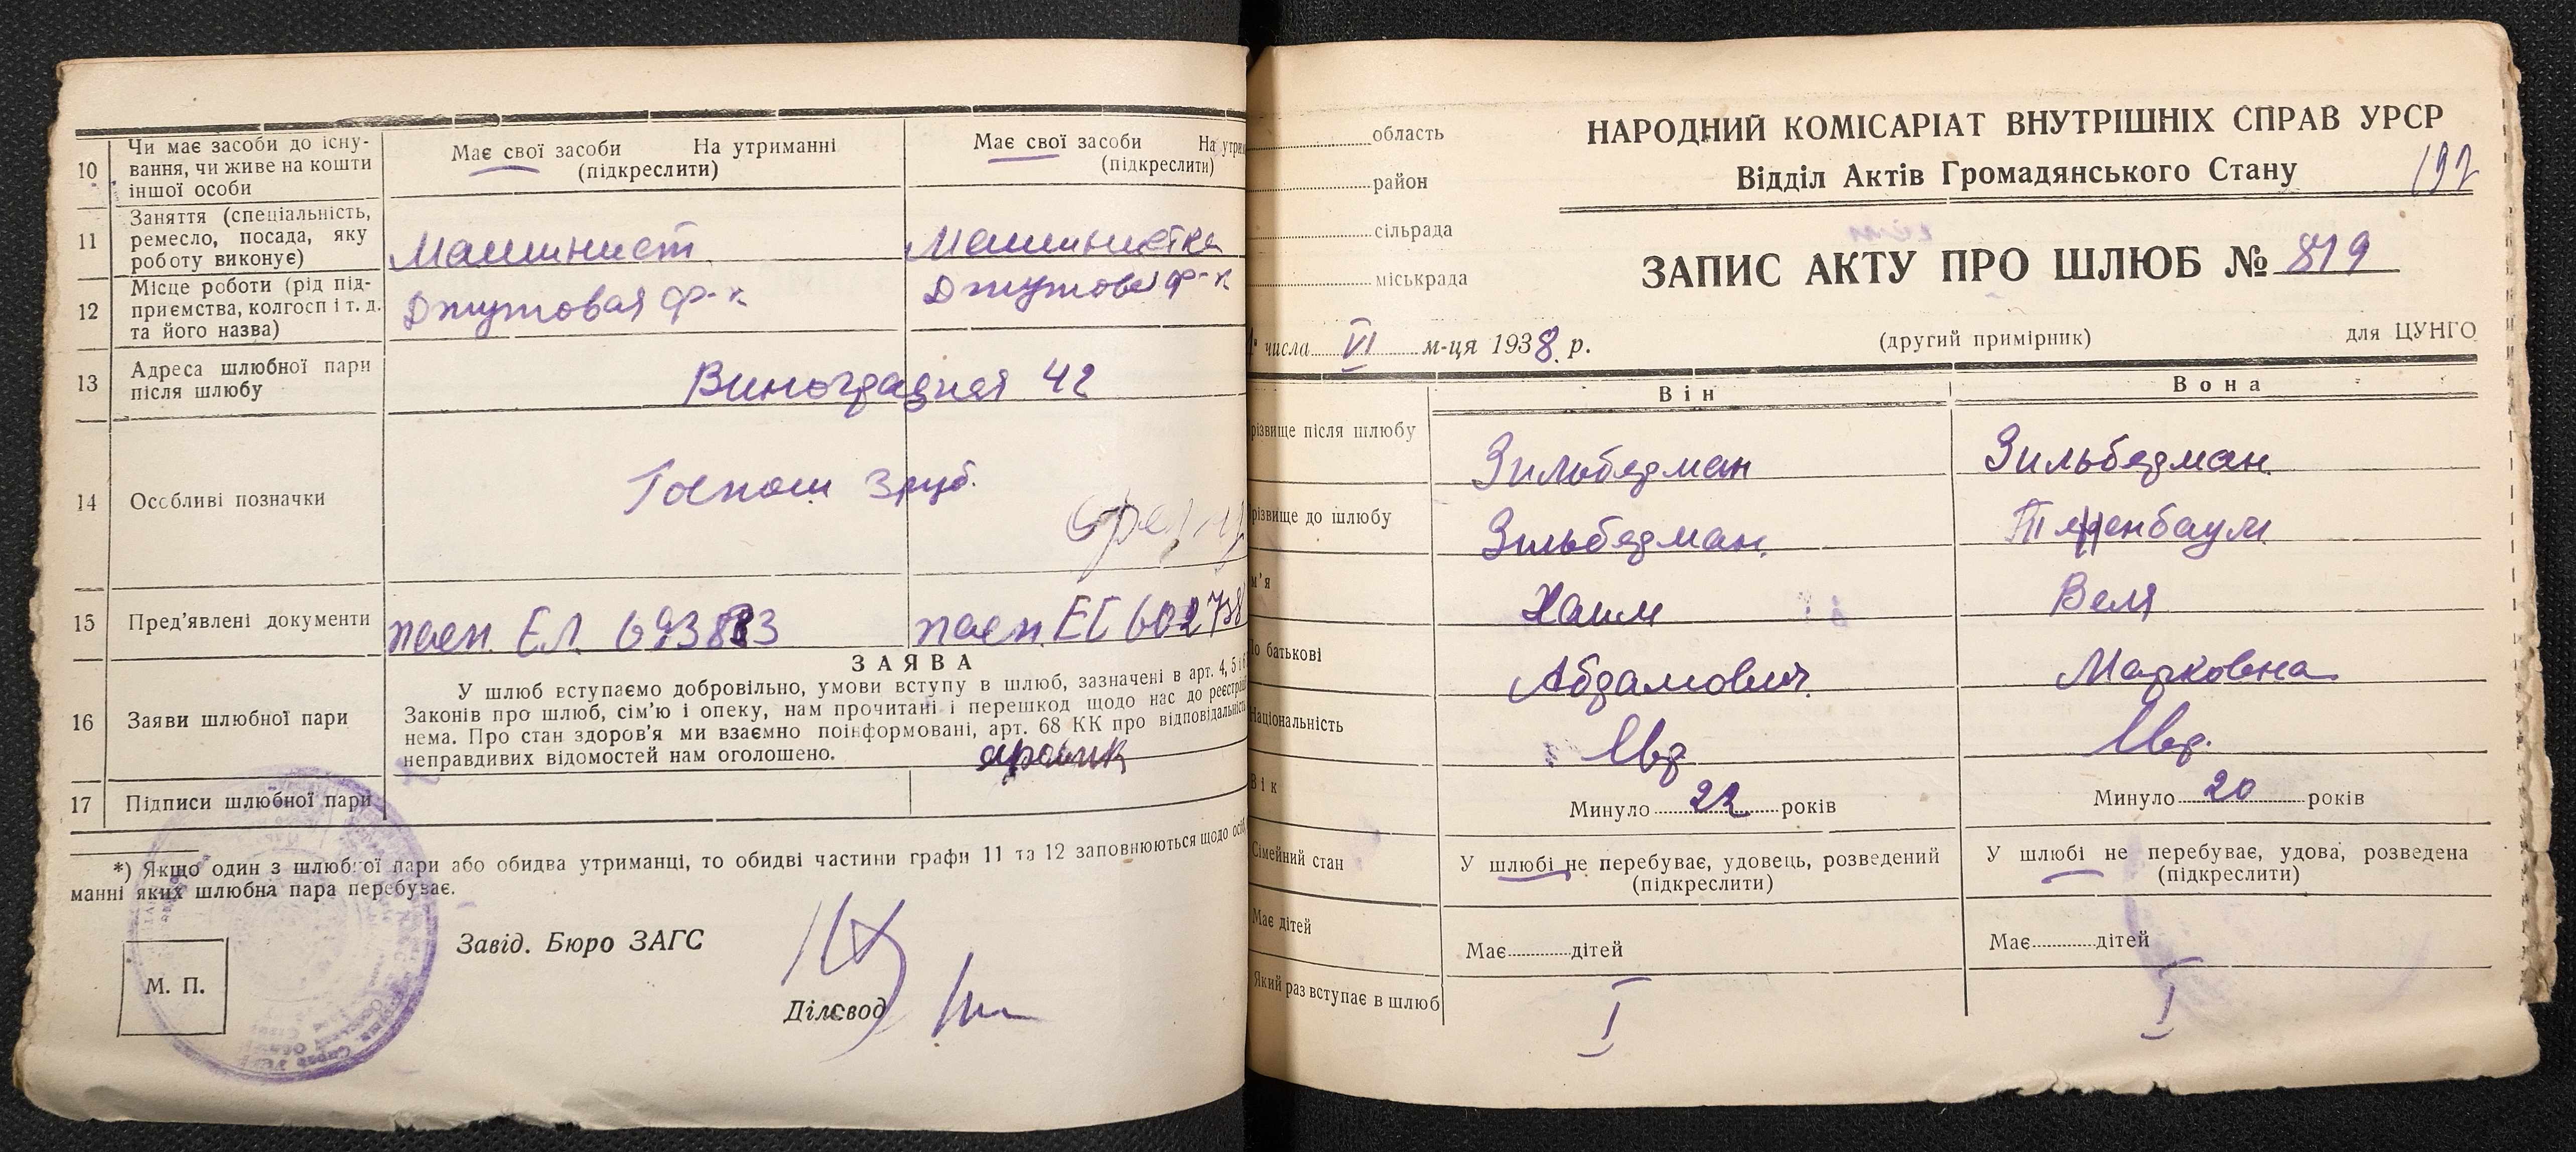 10
Чи має засоби до існу-
вання, чи живе на кошти
іншої особи
Має свої засоби На утриманні
(підкреслити)
Має свої засоби На утрим
(підкреслити)
11
Заняття (спеціальність,
ремесло, посада, яку
роботу виконує)
Машинист
Машинистка
12
Місце роботи (рід під-
приємства, колгосп і т. д.
та його назва)
Джутовая ф-к
Джутовая ф-к
13
Адреса шлюбної пари
після шлюбу
Виноградная 42
14
Особливі позначки
Госпош 3 руб.
15
Пред'явлені документи
пасп. ЕЛ 693883
пасп. ЕГ 602738
16
Заяви шлюбної пари
ЗАЯВА
У шлюб вступаємо добровільно, умови вступу в шлюб, зазначені в арт. 4, 5 і 6
Законів про шлюб, сім'ю і опеку, нам прочитані і перешкод щодо нас до реєстрації
нема. Про стан здоров'я ми взаємно поінформовані, арт. 68 КК про відповідальність
неправдивих відомостей нам оголошено.
17
Підписи шлюбної пари
*) Якщо один з шлюбної пари або обидва утриманці, то обидві частини графи 11 та 12 заповнюються щодо осіб,
манні яких шлюбна пара перебуває.
М. П.
Завід. Бюро ЗАГС
Діловод
область
район
сільрада
міськрада
НАРОДНИЙ КОМІСАРІАТ ВНУТРІШНІХ СПРАВ УРСР
Відділ Актів Громадянського Стану
192
ЗАПИС АКТУ ПРО ШЛЮБ № 819
числа VI м-ця 1938 р.
(другий примірник)
для ЦУНГО
Він
Вона
різвище після шлюбу
Зильберман
Зильберман
різвище до шлюбу
Зильберман
Тененбаум
м'я
Хаим
Веля
По батькові
Абрамович
Марковна
Національність
Євр
Євр.
Вік
Минуло 22 років
Минуло 20 років
Сімейний стан
У шлюбі не перебуває, удовець, розведений
(підкреслити)
У шлюбі не перебуває, удова, розведена
(підкреслити)
Має дітей
Має дітей
Має дітей
Який раз вступає в шлюб
I
I